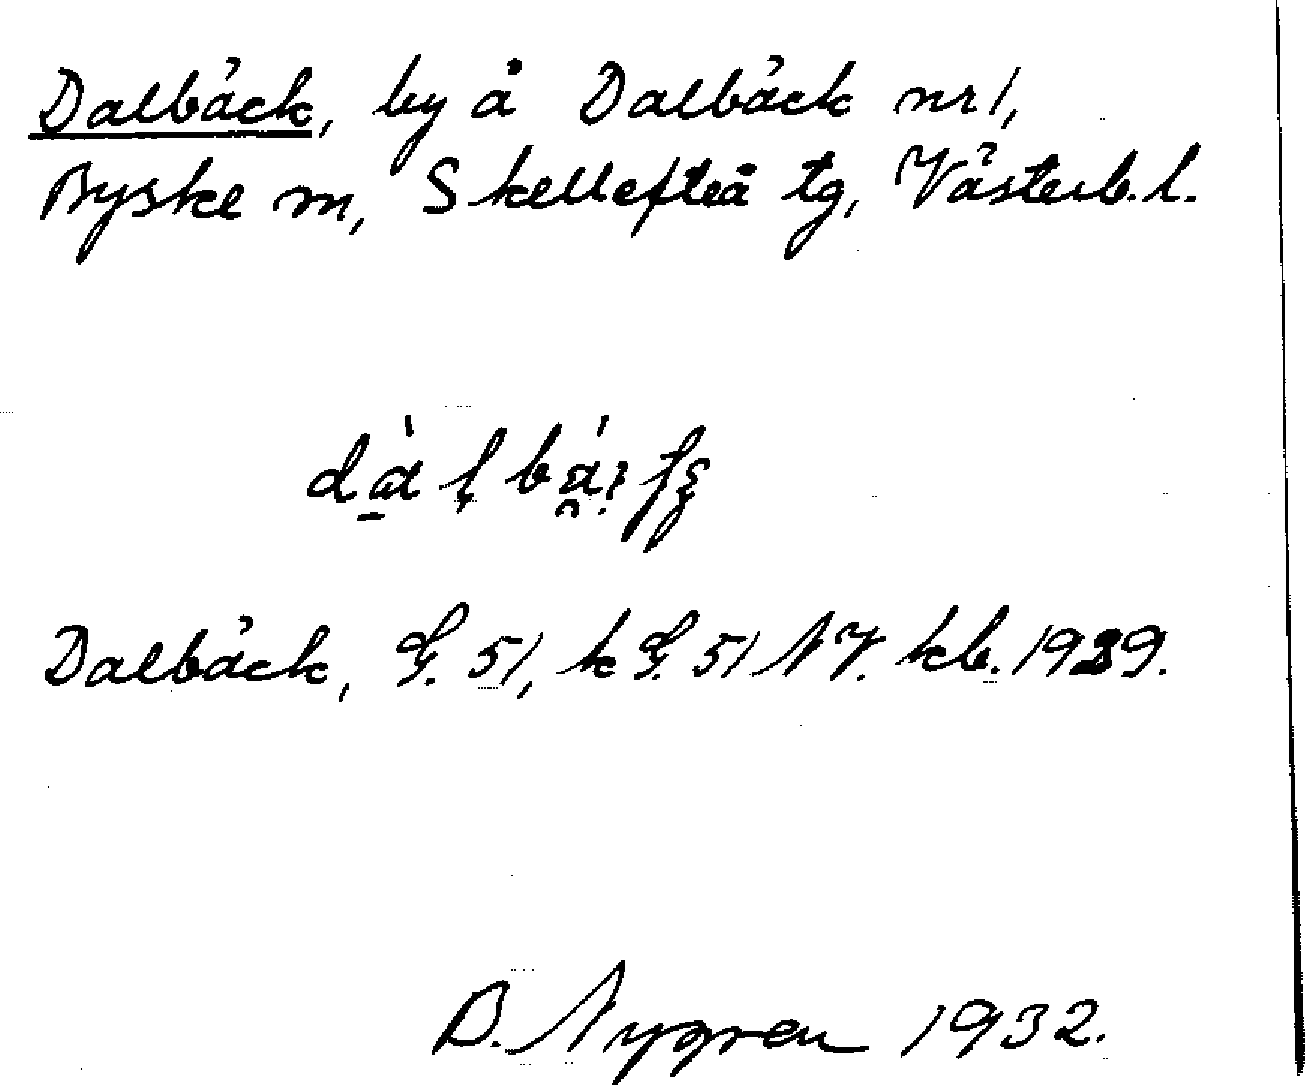 Dalbäck, by å Dalbäck nr 1,
Byske sn, Skellefteå tg, Västerb. l.
Dalbäck, G. 51, k G. 51 NV. kb. 1939.
B. Nygren 1932.